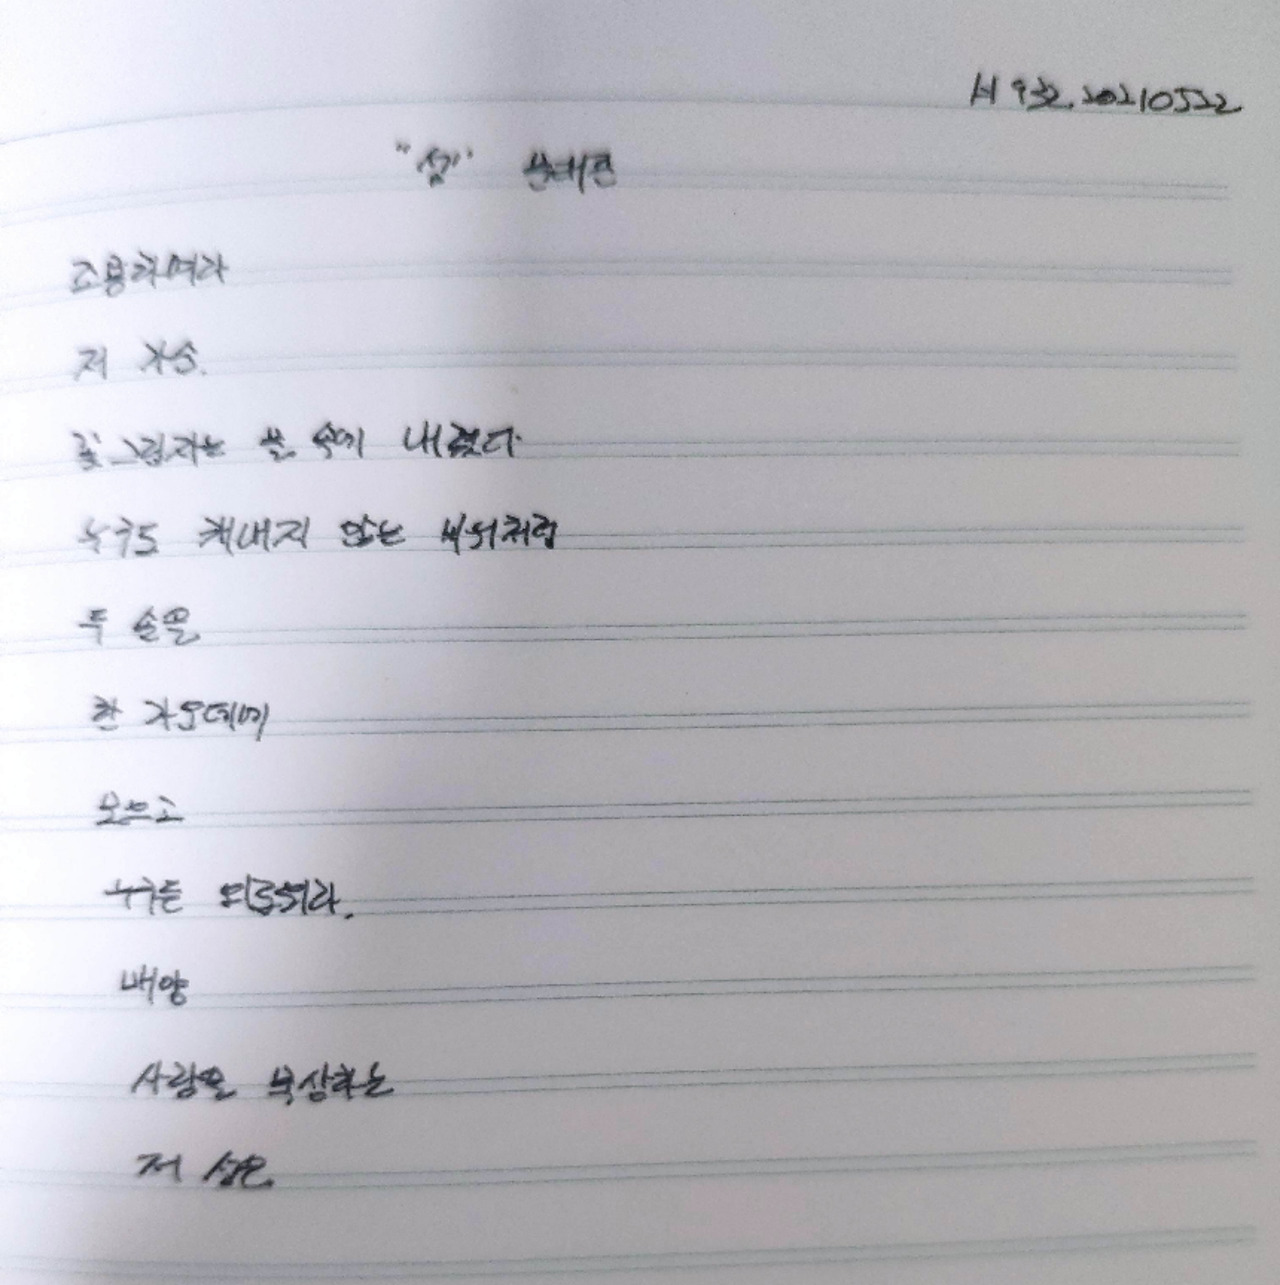 시 9호. 20210522
"섬" 문태준
조용하여라
저 가슴.
꽃 그림자는 물 속에 내렸다
누구도 캐내지 않는 바위처럼
두 손을
한 가운데에
모으고
누구든 외로워라.
매양
사랑을 묵상하는
저 섬은